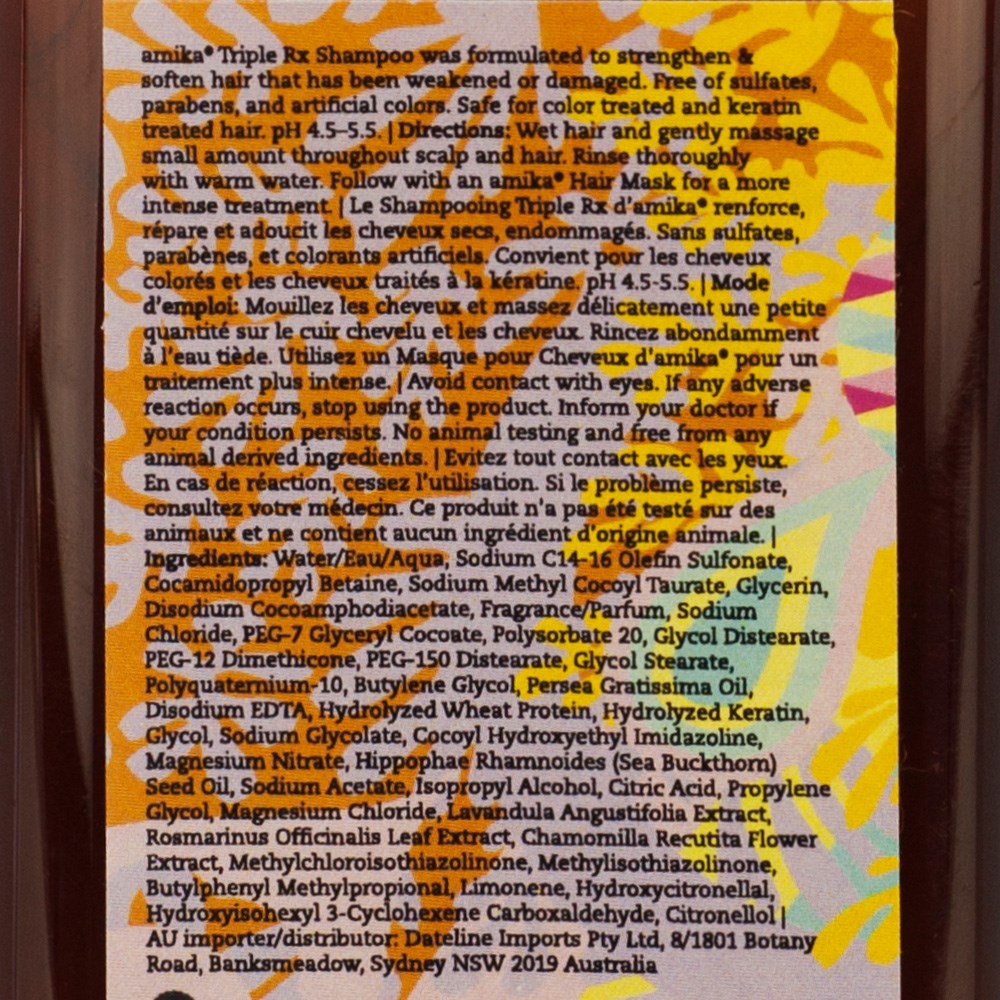 amika® Triple Rx Shampoo was formulated to strengthen &
soften hair that has been weakened or damaged. Free of sulfates,
parabens, and artificial colors. Safe for color treated and keratin
treated hair. pH 4.5–5.5. | Directions: Wet hair and gently massage
small amount throughout scalp and hair. Rinse thoroughly
with warm water. Follow with an amika® Hair Mask for a more
intense treatment. | Le Shampooing Triple Rx d'amika® renforce,
répare et adoucit les cheveux secs, endommagés. Sans sulfates,
parabènes, et colorants artificiels. Convient pour les cheveux
colorés et les cheveux traités à la kératine. pH 4.5-5.5. | Mode
d'emploi: Mouillez les cheveux et massez délicatement une petite
quantité sur le cuir chevelu et les cheveux. Rincez abondamment
à l'eau tiède. Utilisez un Masque pour Cheveux d'amika® pour un
traitement plus intense. | Avoid contact with eyes. If any adverse
reaction occurs, stop using the product. Inform your doctor if
your condition persists. No animal testing and free from any
animal derived ingredients. | Evitez tout contact avec les yeux.
En cas de réaction, cessez l'utilisation. Si le problème persiste,
consultez votre médecin. Ce produit n'a pas été testé sur des
animaux et ne contient aucun ingrédient d'origine animale. |
Ingredients: Water/Eau/Aqua, Sodium C14-16 Olefin Sulfonate,
Cocamidopropyl Betaine, Sodium Methyl Cocoyl Taurate, Glycerin,
Disodium Cocoamphodiacetate, Fragrance/Parfum, Sodium
Chloride, PEG-7 Glyceryl Cocoate, Polysorbate 20, Glycol Distearate,
PEG-12 Dimethicone, PEG-150 Distearate, Glycol Stearate,
Polyquaternium-10, Butylene Glycol, Persea Gratissima Oil,
Disodium EDTA, Hydrolyzed Wheat Protein, Hydrolyzed Keratin,
Glycol, Sodium Glycolate, Cocoyl Hydroxyethyl Imidazoline,
Magnesium Nitrate, Hippophae Rhamnoides (Sea Buckthorn)
Seed Oil, Sodium Acetate, Isopropyl Alcohol, Citric Acid, Propylene
Glycol, Magnesium Chloride, Lavandula Angustifolia Extract,
Rosmarinus Officinalis Leaf Extract, Chamomilla Recutita Flower
Extract, Methylchloroisothiazolinone, Methylisothiazolinone,
Butylphenyl Methylpropional, Limonene, Hydroxycitronellal,
Hydroxyisohexyl 3-Cyclohexene Carboxaldehyde, Citronellol |
AU importer/distributor: Dateline Imports Pty Ltd, 8/1801 Botany
Road, Banksmeadow, Sydney NSW 2019 Australia